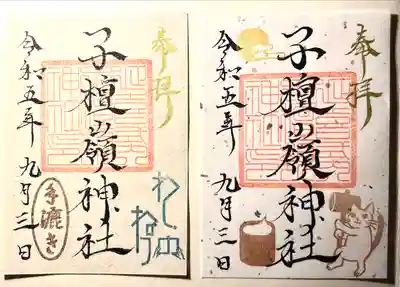 奉拝
子檀嶺神社
令和五年 九月三日
手漉き
奉拝
子檀嶺神社
令和五年 九月三日